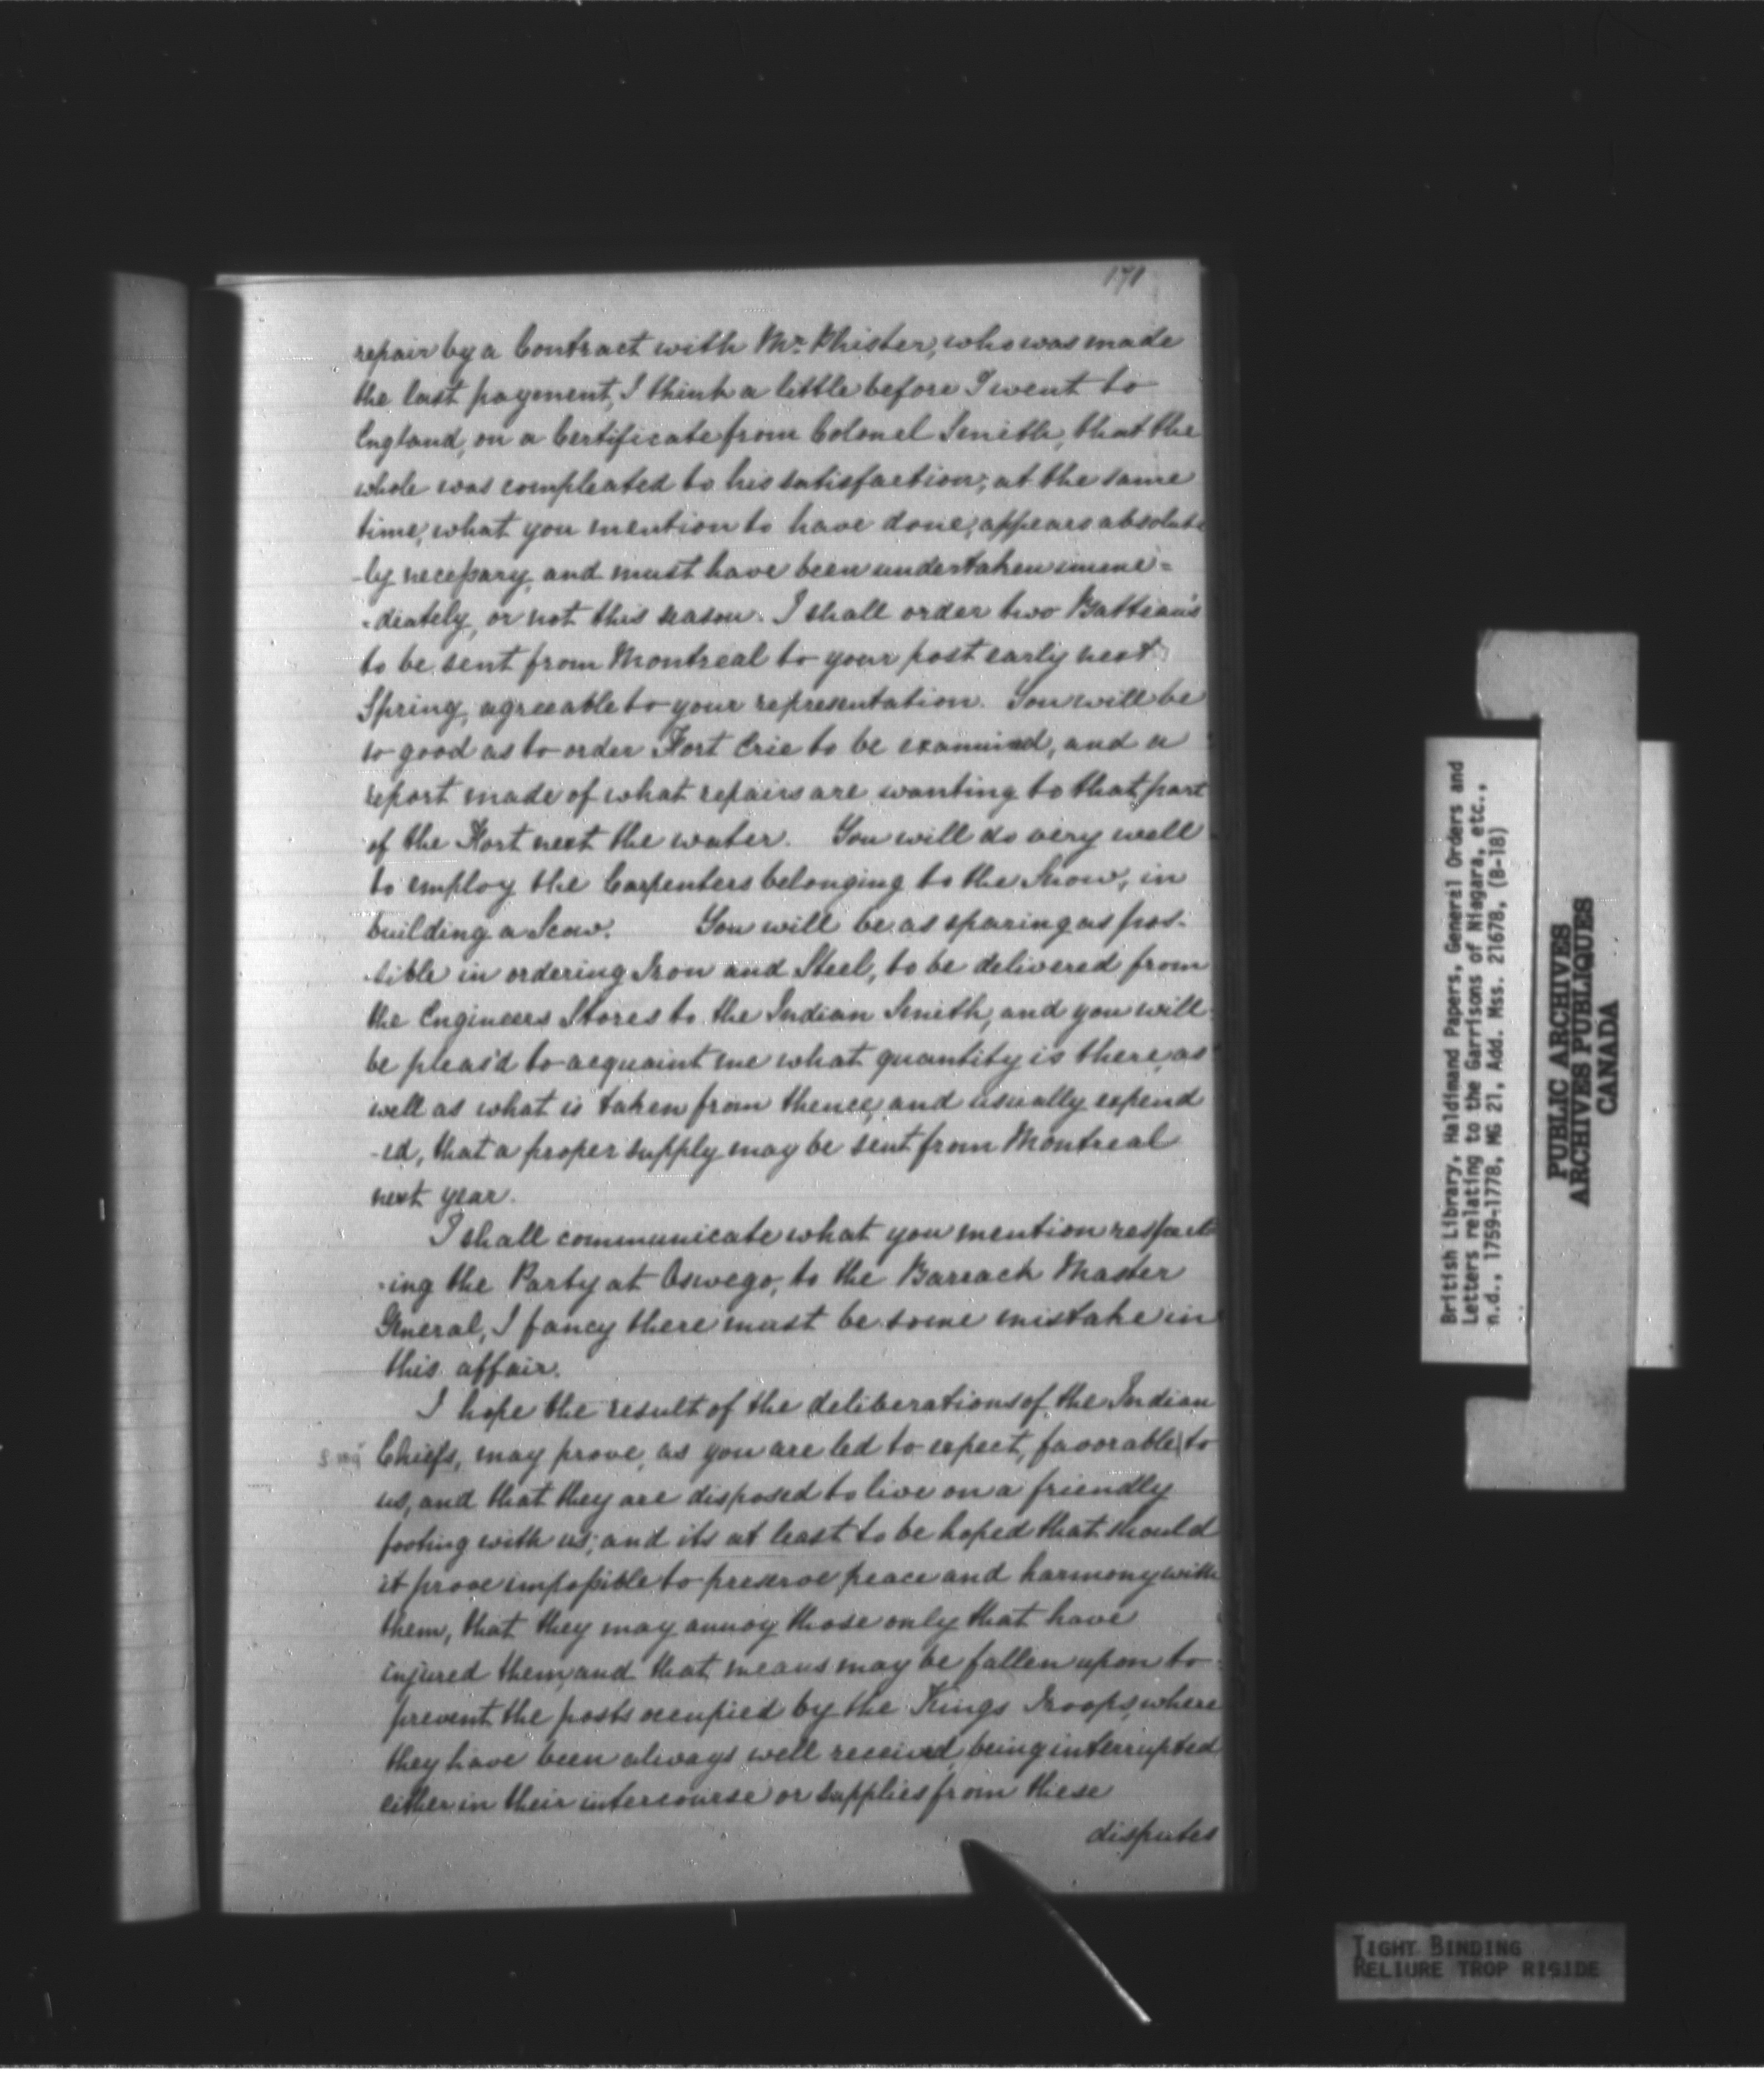 171
repair by a Contract with Mr. Phister, who was made
the last payment, I think a little before I went to
England, on a Certificate from Colonel Smith, that the
whole was compleated to his satisfaction; at the same
time, what you mention to have done, appears absolute
-ly necessary, and must have been undertaken imme=
=diately, or not this season. I shall order two Batteau's
to be sent from Montreal to your post early next
Spring, agreeable to your representation. You will be
so good as to order Fort Erie to be examined, and a
report made of what repairs are wanting to that part
of the Fort next the water. You will do very well
to employ the Carpenters belonging to the Snow, in
building a Scow. You will be as sparing as pos-
-sible in ordering Iron and Steel, to be delivered from
the Engineers Stores to the Indian Smith, and you will
be pleas'd to acquaint me what quantity is there, as
well as what is taken from thence, and usually expend
-ed, that a proper supply may be sent from Montreal
next year.
I shall communicate what you mention respect
-ing the Party at Oswego, to the Barrack Master
General, I fancy there must be some mistake in
this affair.
I hope the result of the deliberations of the Indian
Chiefs, may prove, as you are led to expect, favorable to
us, and that they are disposed to live on a friendly
footing with us; and its at least to be hoped that should
it prove impossible to preserve peace and harmony with
them, that they may annoy those only that have
injured them, and that means may be fallen upon to
prevent the posts occupied by the Kings Troops, where
they have been always well received, being interrupted
either in their intercourse or supplies from these
disputes
British Library, Haldimand Papers, General Orders and
Letters relating to the Garrisons of Niagara, etc.,
n.d., 1759-1778, MG 21, Add. Mss. 21678, (B-18)
PUBLIC ARCHIVES
ARCHIVES PUBLIQUES
CANADA
TIGHT BINDING
RELIURE TROP RIGIDE